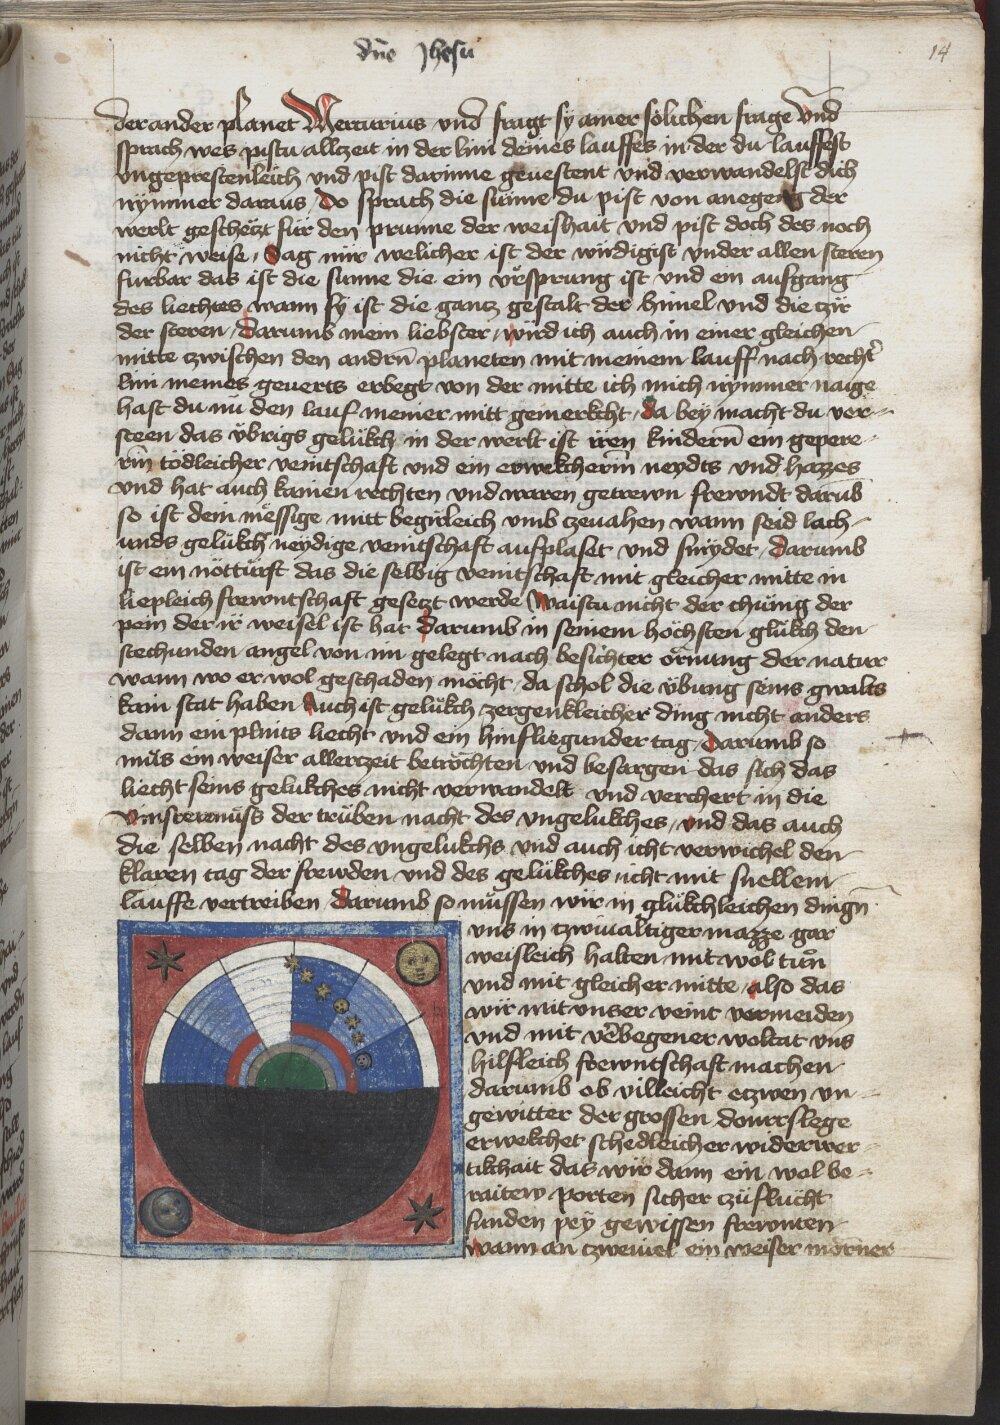 dn̄e Jhesu
14
der ander planet Mercurius vnd fragt sy ainer sölichen frage Vnd
sprach wes pistu allczeit in der lini deines lauffes in der du lauffest
vngeprestenleich vnd pist darinne geuestent vnd verwandelst dich
nÿmmer daraus / Do sprach die sunne du pist von anegeng der
werlt geschëtzt für den prunne der weishait vnd pist doch des noch
nicht weise / Sag mir welicher ist der wirdigist vnder allen steren
fürbar das ist die sunne die ein vrsprung ist vnd ein aufgang
des liechtes wann sÿ ist die gantz gestalt der himel vnd die czir
der steren / Darumb mein liebster / wird ich auch in einer gleichen
mitte czwischen den andrn̄ planeten mit meinem lauff nach recht̉
lini meines geuerts erbegt von der mitte ich mich nÿmmer naige
hast du nü den lauf meiner mitt gemerkcht / Da beÿ macht du ver-
steen das vbrigs gelükch in der werlt ist iren kindern̄ ein gepere-
rin̄ tödleicher veintschaft vnd ein erwekcherin̄ neydts vnd hazzes
vnd hat auch kainen rechten vnd waren getrewn frewndt darub̄
so ist dein mëssige mitt begirleich vmb czeuahen wann seid lach-
unds gelükch neydige veintschaft aufplaset vnd smÿdet / Darumb
ist ein nötturft das die selbig veintschaft mit gleicher mitte in
liepleich frewntschaft gesetzt werde Waistu nicht der chünig der
pein der ir weisel ist hat Darumb in seinem höchsten glükch den
stechunden angel von im gelegt nach besichter ornung der natur
wann wo er wol geschaden möcht / da schol die vbung seins gwalts
kain stat haben Auch ist gelükch zergenkleicher ding nicht anders
dann ein plints liecht vnd ein hinfliegunder tag / Darumb so
müs ein weiser allerczeit betrochten vnd besargen das sich das
liecht seins gelukches nicht verwandelt vnd verchert in die
vinsternüss der trüben nacht des vngelukches / vnd das auch
die selben nacht des vngelukchs vnd auch icht verwichel den
klaren tag der frewden vnd des gelükches icht mit snellem
lauffe vertreiben / Darumb so müssen wir in glükchleichen dingn̄
vns in czwiualtiger mazze gar
weisleich halten mit wol tün
vnd mit gleicher mitte / also das
wir mit vnser veint vermeiden
vnd mit verbegener woltat vns
hilfleich frewntschaft machen
darumb ob villeicht etzwen vn-
gewitter der grossen donrrslege
erwekchet schedleicher widerwer-
tikchait das wir dann ein wol be-
raiten porten sicher czüflucht
funden peÿ gewissen frewnten
wann an czweiuel ein weiser morner